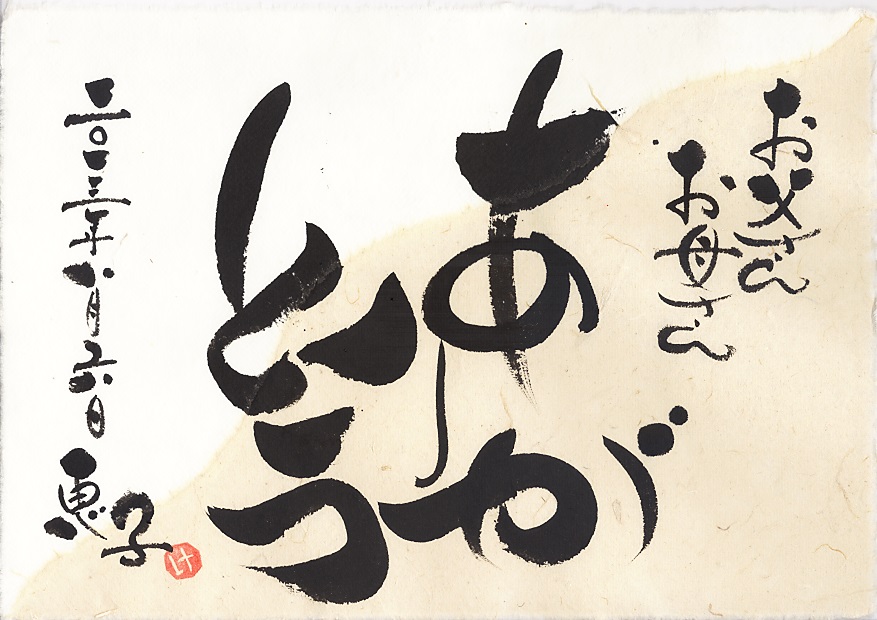 お父さん
お母さん
ありが
とう
二〇一三年八月六日
恵子
け